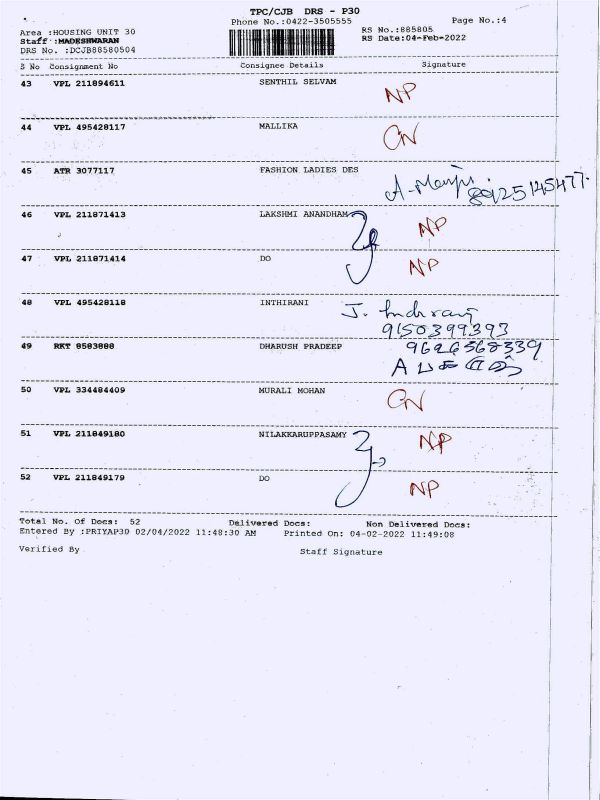 TPC/CJB DRS - P30
Phone No.:0422-3505555 Page No.:4
Area :HOUSING UNIT 30 RS No.:885805
Staff :MADESHWARAN RS Date:04-Feb-2022
DRS No. :DCJB88580504
S No Consignment No Consignee Details Signature
43 VPL 211894611 SENTHIL SELVAM NP
44 VPL 495428117 MALLIKA CN
45 ATR 3077117 FASHION LADIES DES A. Manju. 8925145477.
46 VPL 211871413 LAKSHMI ANANDHAM NP
47 VPL 211871414 DO NP
48 VPL 495428118 INTHIRANI J. Indirani
9150399393
49 RKT 8583888 DHARUSH PRADEEP 9626568339
50 VPL 334484409 MURALI MOHAN CN
51 VPL 211849180 NILAKKARUPPASAMY NP
52 VPL 211849179 DO NP
Total No. Of Docs: 52 Delivered Docs: Non Delivered Docs:
Entered By :PRIYAP30 02/04/2022 11:48:30 AM Printed On: 04-02-2022 11:49:08
Verified By Staff Signature